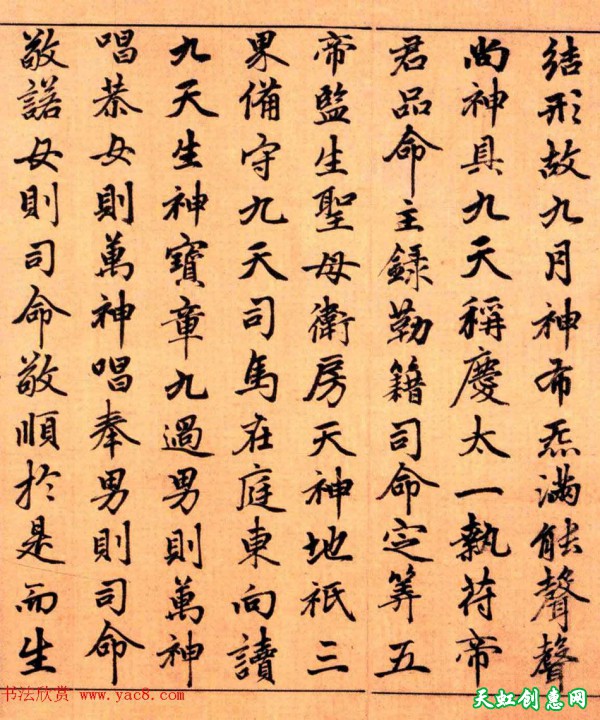 結形故九月神布炁滿能聲聲
尚神具九天稱慶太一執苻帝
君品命主錄勒籍司命定筭五
帝監生聖母衛房天神地祇三
果備守九天司馬在庭東向讀
九天生神寶章九過男則萬神
唱恭女則萬神唱奉男則司命
敬諾女則司命敬順於是而生
书法欣赏 www.yac8.com
天虹创意网